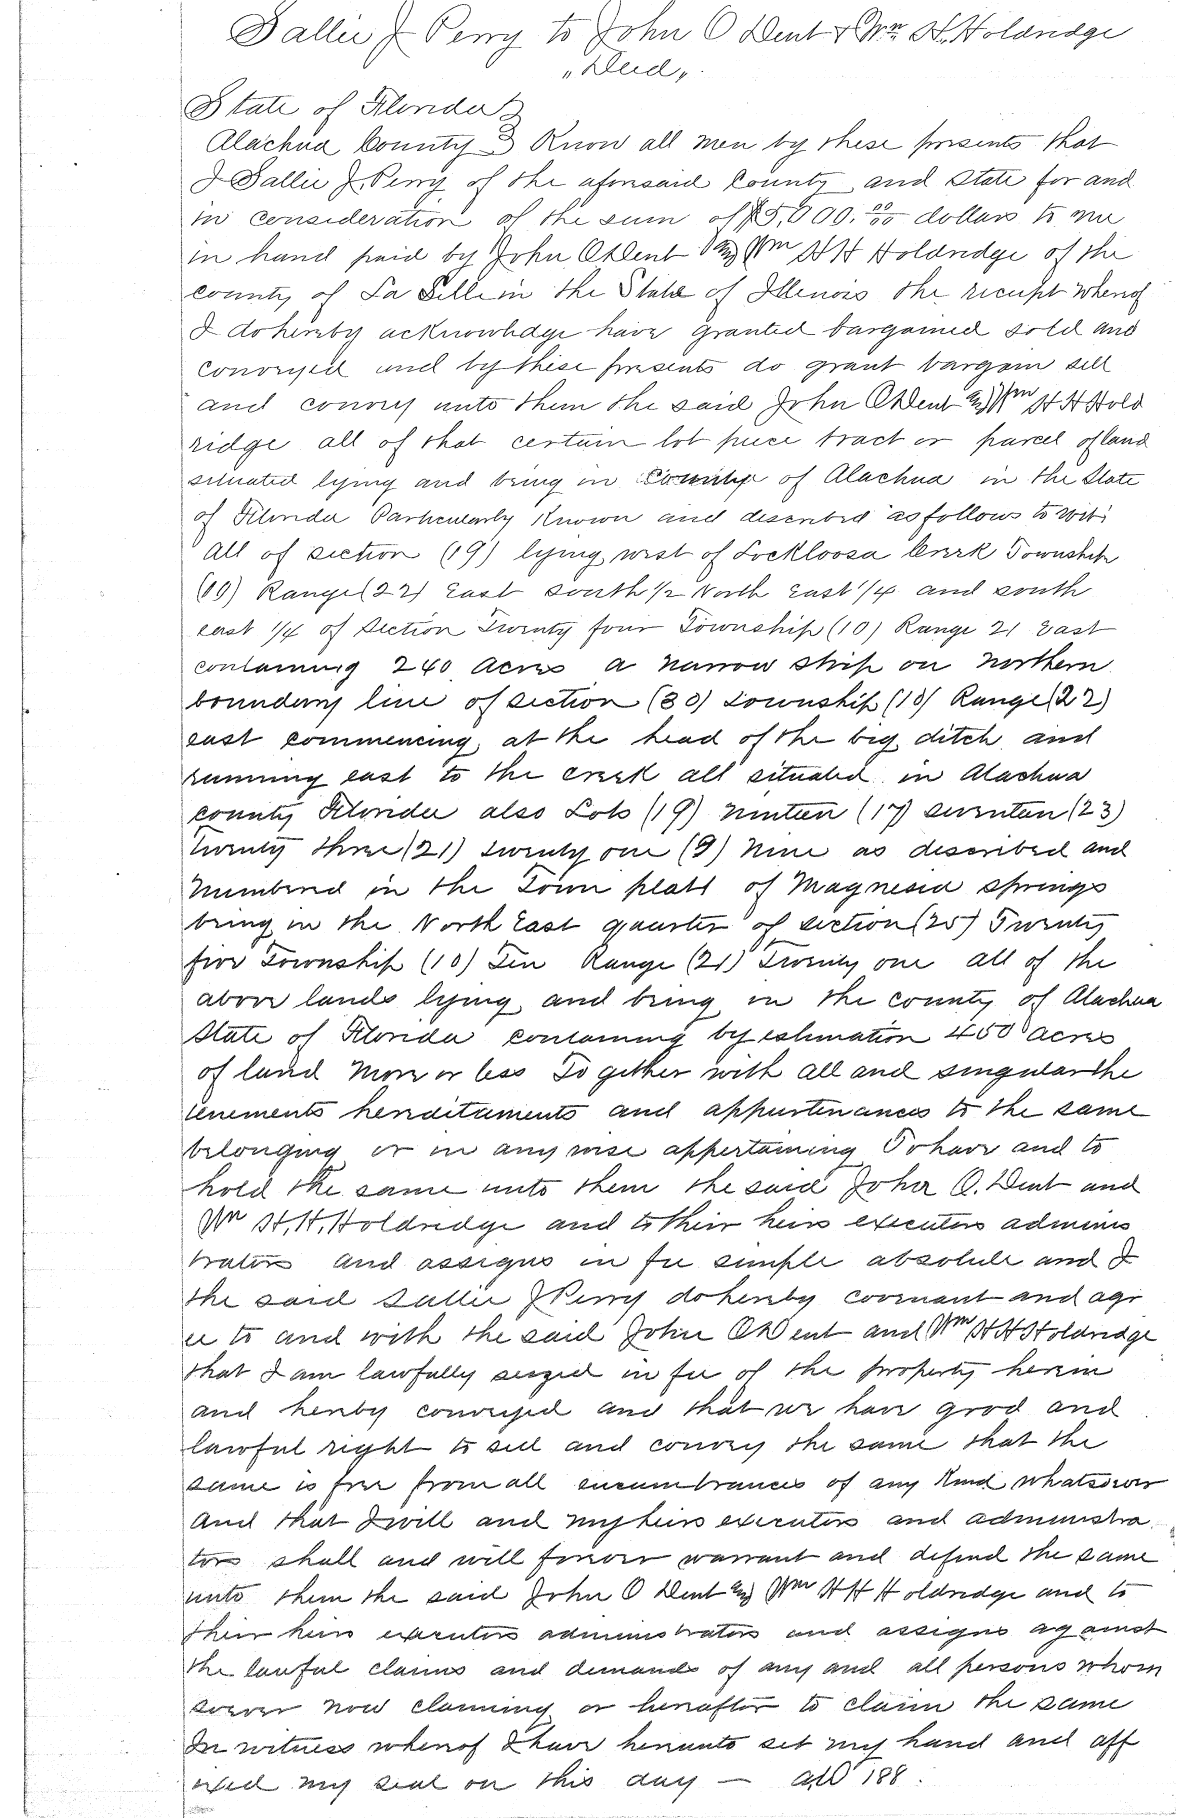 Sallie J Perry to John O Dent & Wm H. Holdridge
"Deed".
State of Florida }
Alachua County } Know all men by these presents that
I Sallie J. Perry of the aforesaid County and State for and
in consideration of the sum of $5,000.00 dollars to me
in hand paid by John O Dent and Wm H H Holdridge of the
county of La Salle in the State of Illinois the receipt whereof
I do hereby acknowledge have granted bargained sold and
conveyed and by these presents do grant bargain sell
and convey unto them the said John O Dent and Wm H H Hold
ridge all of that certain lot piece tract or parcel of land
situated lying and being in County of Alachua in the State
of Florida Particularly Known and described as follows to wit:
All of section (19) lying west of Lockloosa Creek Township
(10) Range (22) East south 1/2 North East 1/4 and south
east 1/4 of Section Twenty four Township (10) Range 21 East
containing 240 acres a narrow strip on northern
boundary line of section (30) township (10) Range (22)
east commencing at the head of the big ditch and
running east to the creek all situated in Alachua
county Florida also Lots (19) ninteen (17) seventen (23)
twenty three (21) twenty one (9) nine as described and
numbered in the Town platt of Magnesia springs
being in the North East quarter of section (25) Twenty
five Township (10) Ten Range (21) Twenty one all of the
above lands lying and being in the county of Alachua
State of Florida containing by estimation 450 acres
of land more or less Together with all and singular the
tenements hereditaments and appurtenances to the same
belonging or in any wise appertaining To have and to
hold the same unto them the said John O. Dent and
Wm H. H. Holdridge and to their heirs executors adminis
trators and assigns in fee simple absolute and I
the said Sallie J Perry do hereby covenant and agr
ee to and with the said John O Dent and Wm H H Holdridge
that I am lawfully seized in fee of the property herein
and hereby conveyed and that we have good and
lawful right to sell and convey the same that the
same is free from all encumbrances of any kind whatsoever
And that I will and my heirs executors and administra
tors shall and will forever warrant and defend the same
unto them the said John O Dent and Wm H H Holdridge and to
their heirs executors administrators and assigns against
the lawful claims and demands of any and all persons whom
soever now claiming or hereafter to claim the same
In witness whereof I have hereunto set my hand and aff
ixed my seal on this day — AD 188 .